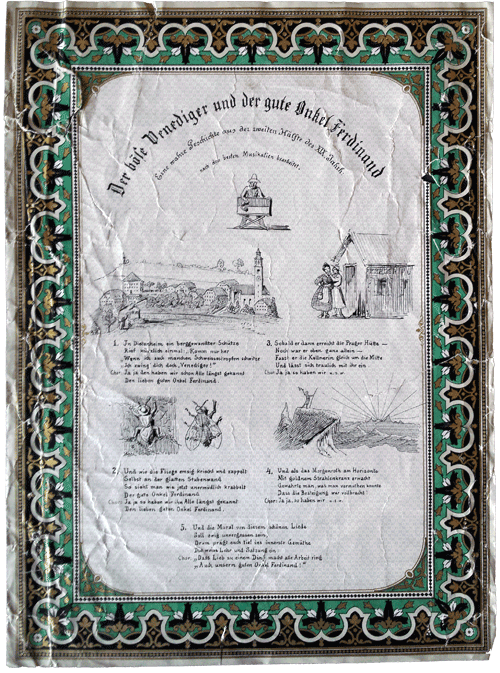 Der böse Venediger und der gute Onkel Ferdinand
Eine wahre Geschichte aus der zweiten Hälfte des XIX. Jahrh.
nach den besten Musikalien bearbeitet.
1. In Dietenheim, ein berggewandter Schütze
Rief kürzlich einmal: „Komm nur her
Wenn ich auch manchen Schweisstropfen schwitze
Ich zwing' dich doch „Venediger"
Chor: Ja ja den haben wir schon Alle längst gekannt
Den lieben guten Onkel Ferdinand.
2. Und wie die Fliege emsig kriecht und zappelt
Selbst an der glatten Stubenwand
So sieht man wie jetzt unermüdlich krabbelt
Der gute Onkel Ferdinand
Chor: Ja ja so haben wir ihn Alle längst gekannt
Den lieben guten Onkel Ferdinand.
3. Sobald er dann erreicht die Prager Hütte —
Noch war er eben ganz allein —
Fasst er die Kellnerin gleich um die Mitte
Und lässt sich traulich mit ihr ein
Chor: Ja ja so haben wir u.s.w.
4. Und als das Morgenroth am Horizonte
Mit goldnem Strahlenkranz erwacht
Gewahrte man, was man vermuthen konnte
Dass die Besteigung war vollbracht
Chor: Ja ja so haben wir u.s.w.
5. Und die Moral von diesem schönen Liede
Soll ewig unvergessen sein,
Drum prägt euch tief ins innerste Gemüthe
Lehr und Satzung ein:
Chor: „Dass Lieb zu einem macht alle Arbeit ring
„Auch unserm guten Onkel Ferdinand!"